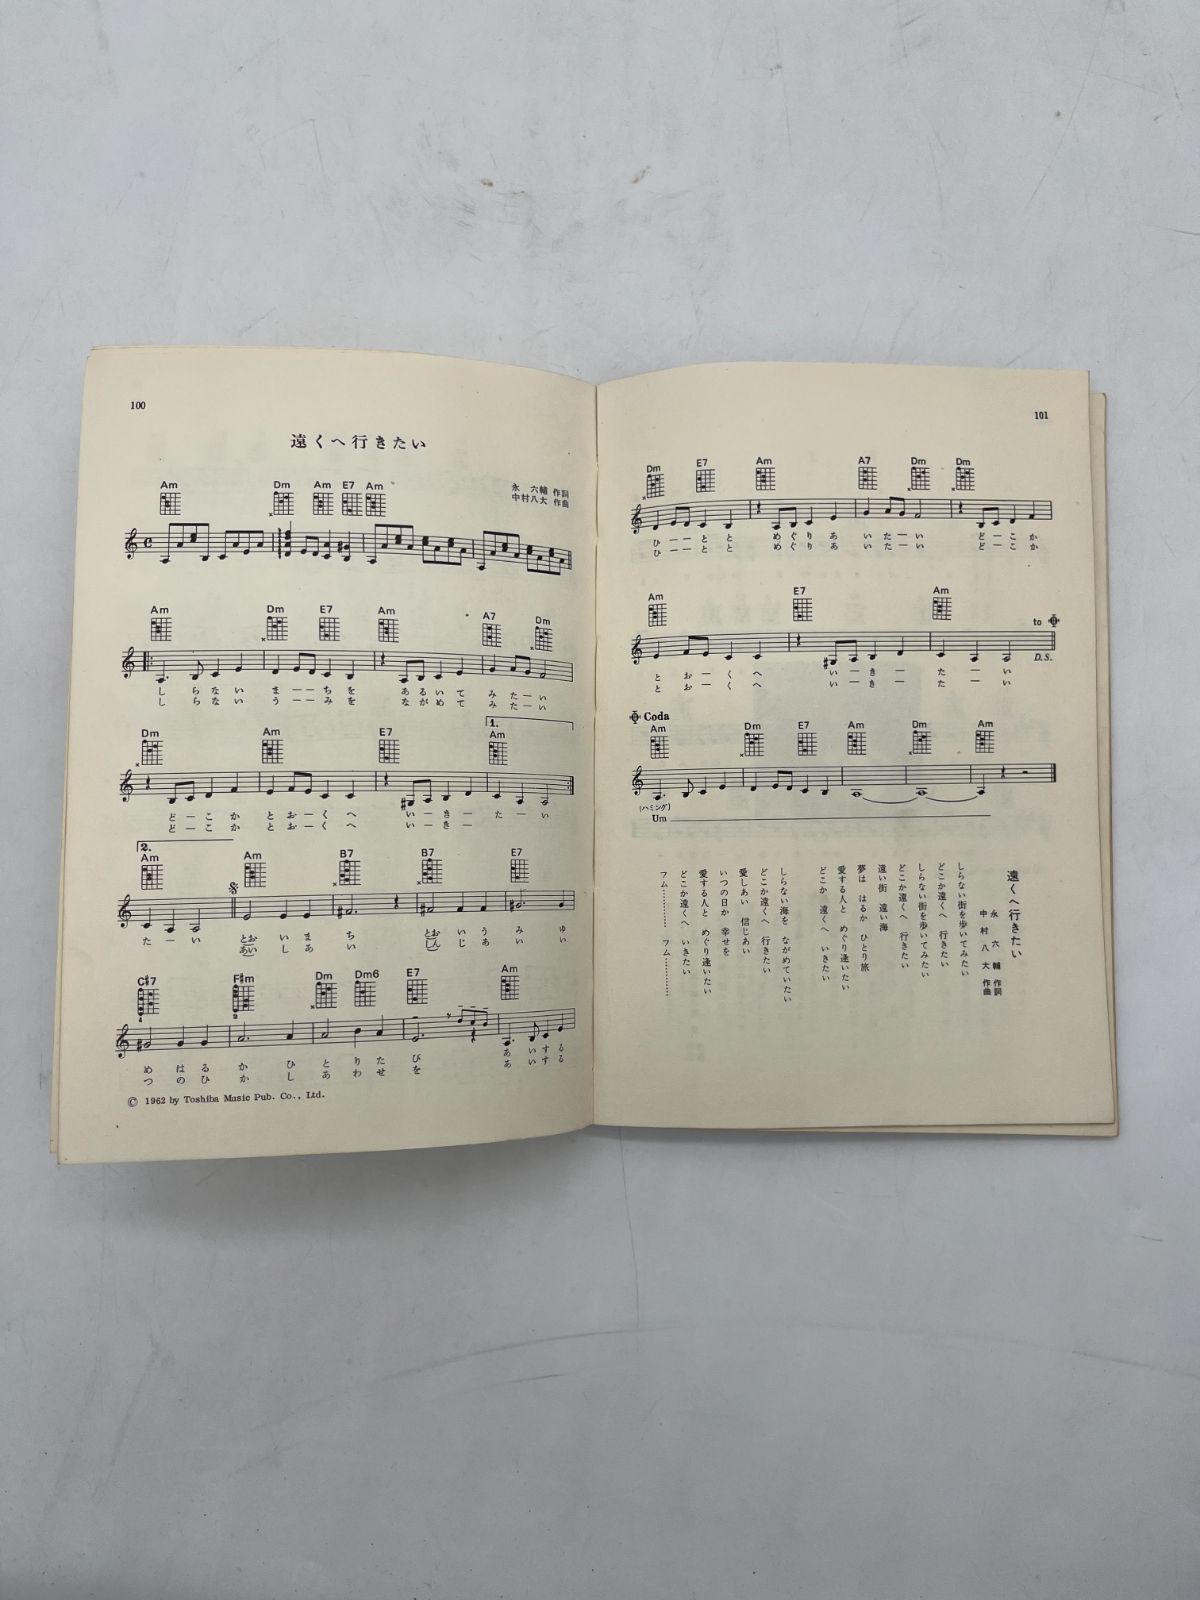 100
遠くへ行きたい
永 六輔 作詞
中村八大 作曲
Am Dm Am E7 Am
Am Dm E7 Am A7 Dm
しらない まーーちを あるいて みたーい
しらない うーーみを ながめて みたーい
1.
Dm Am E7 Am
どーこか とおーくへ いーきー たーい
どーこか とおーくへ いーきー
2.
Am Am B7 B7 E7
たーい とおいまち とおいうみ ゆ
あいしあい しんじあい
C#7 F#m Dm Dm6 E7 Am
めはるか ひとりたび あいする
つのひか しあわせを あいする
© 1962 by Toshiba Music Pub. Co., Ltd.
101
Dm E7 Am A7 Dm Dm
ひーーとと めぐりあ いたーい どーこか
ひーーとと めぐりあ いたーい どーこか
Am E7 Am
to
D.S.
とおーくへ いーきー たーい
とおーくへ いーきー たーい
Coda
Am Dm E7 Am Dm Am
(ハミング)
Um
遠くへ行きたい
永 六輔 作詞
中村八大 作曲
しらない街を歩いてみたい
どこか遠くへ 行きたい
しらない街を歩いてみたい
どこか遠くへ 行きたい
遠い街 遠い海
夢は はるか ひとり旅
愛する人と めぐり逢いたい
どこか 遠くへ いきたい
しらない海を ながめていたい
どこか遠くへ 行きたい
愛しあい 信じあい
いつの日か 幸せを
愛する人と めぐり逢いたい
どこか遠くへ いきたい
フム………… フム…………